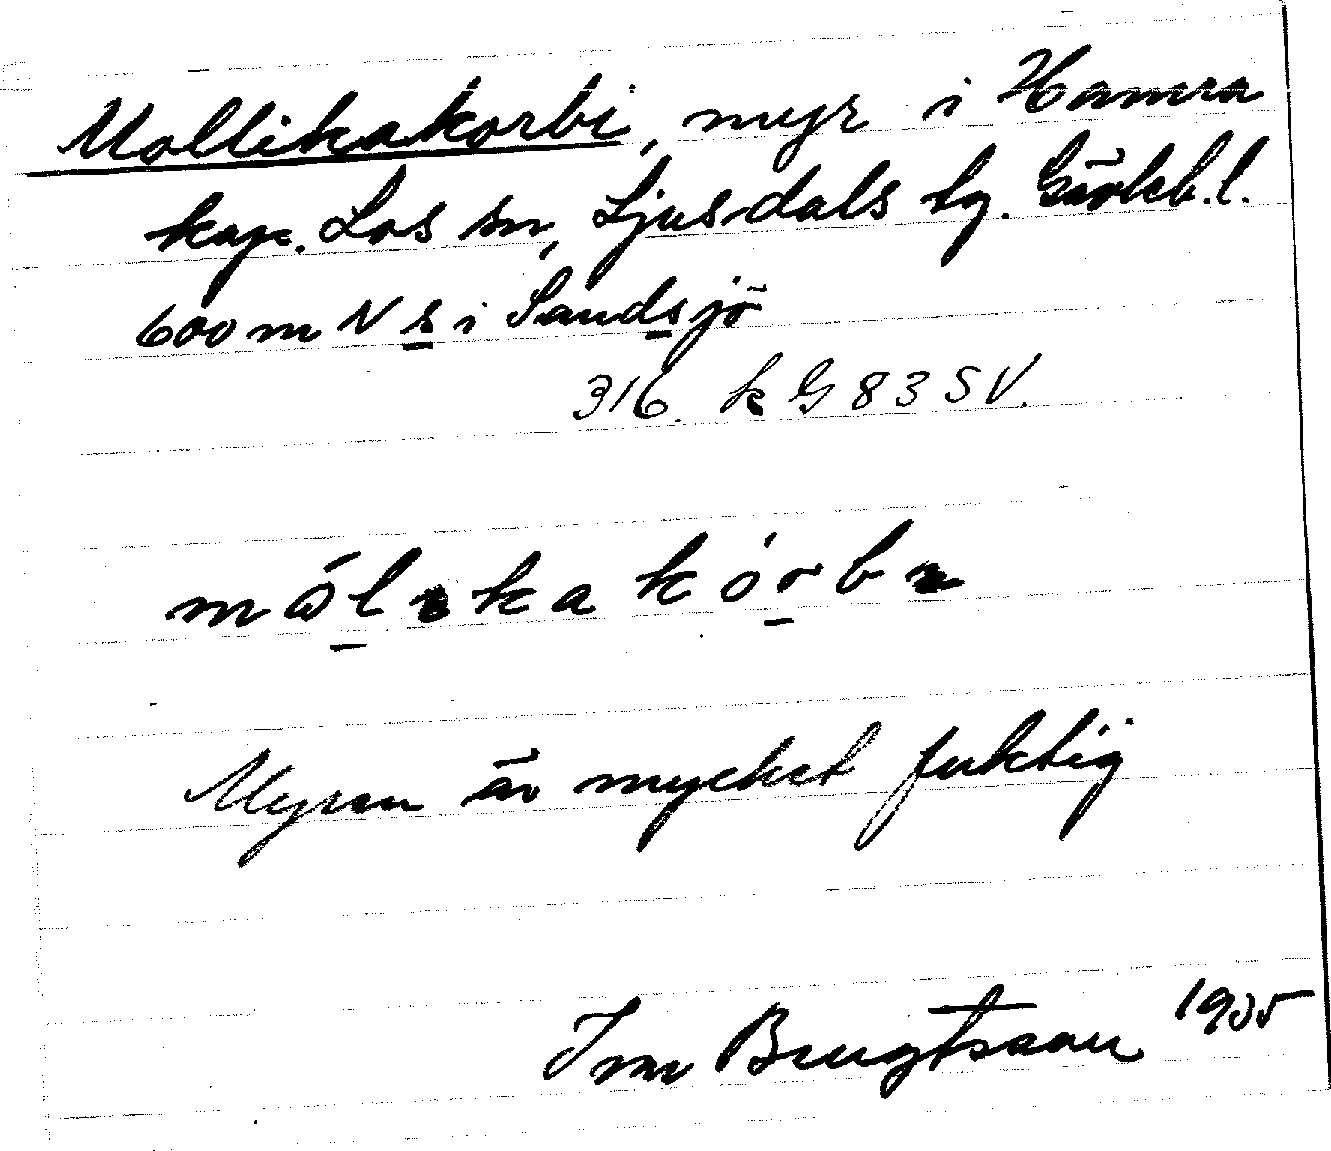 Mollikakorbi, myr i Hamra
kap. Los sn, Ljusdals tg. Gävleb. l.
600 m N s i Sandsjö
316. k G 83 SV.
Myren är mycket fuktig
Bengtsson 1935